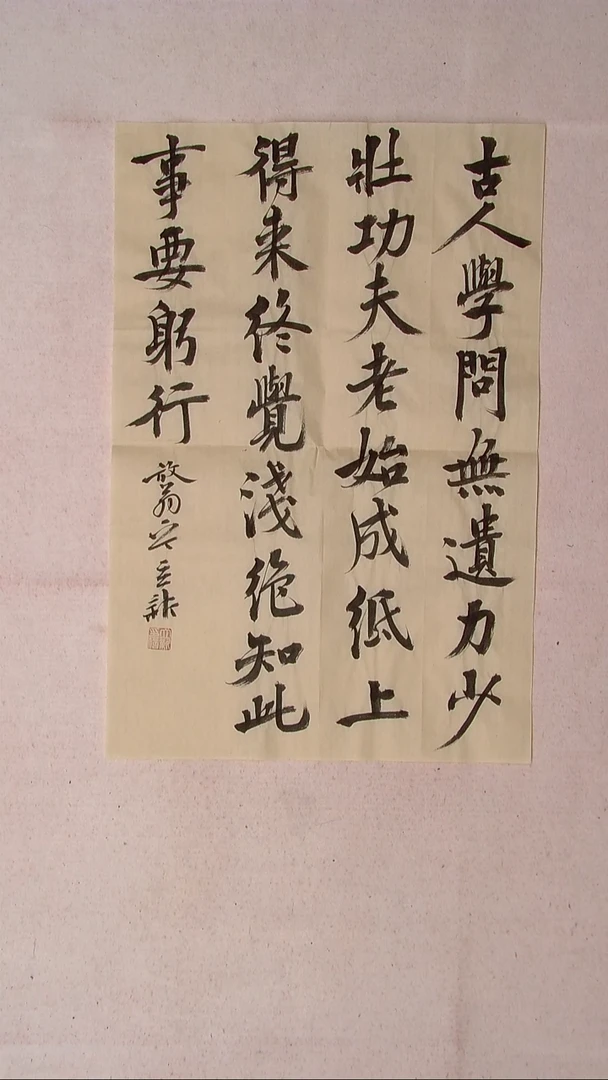 古人學問無遺力少
壯功夫老始成紙上
得来終覺淺絶知此
事要躬行
放翁